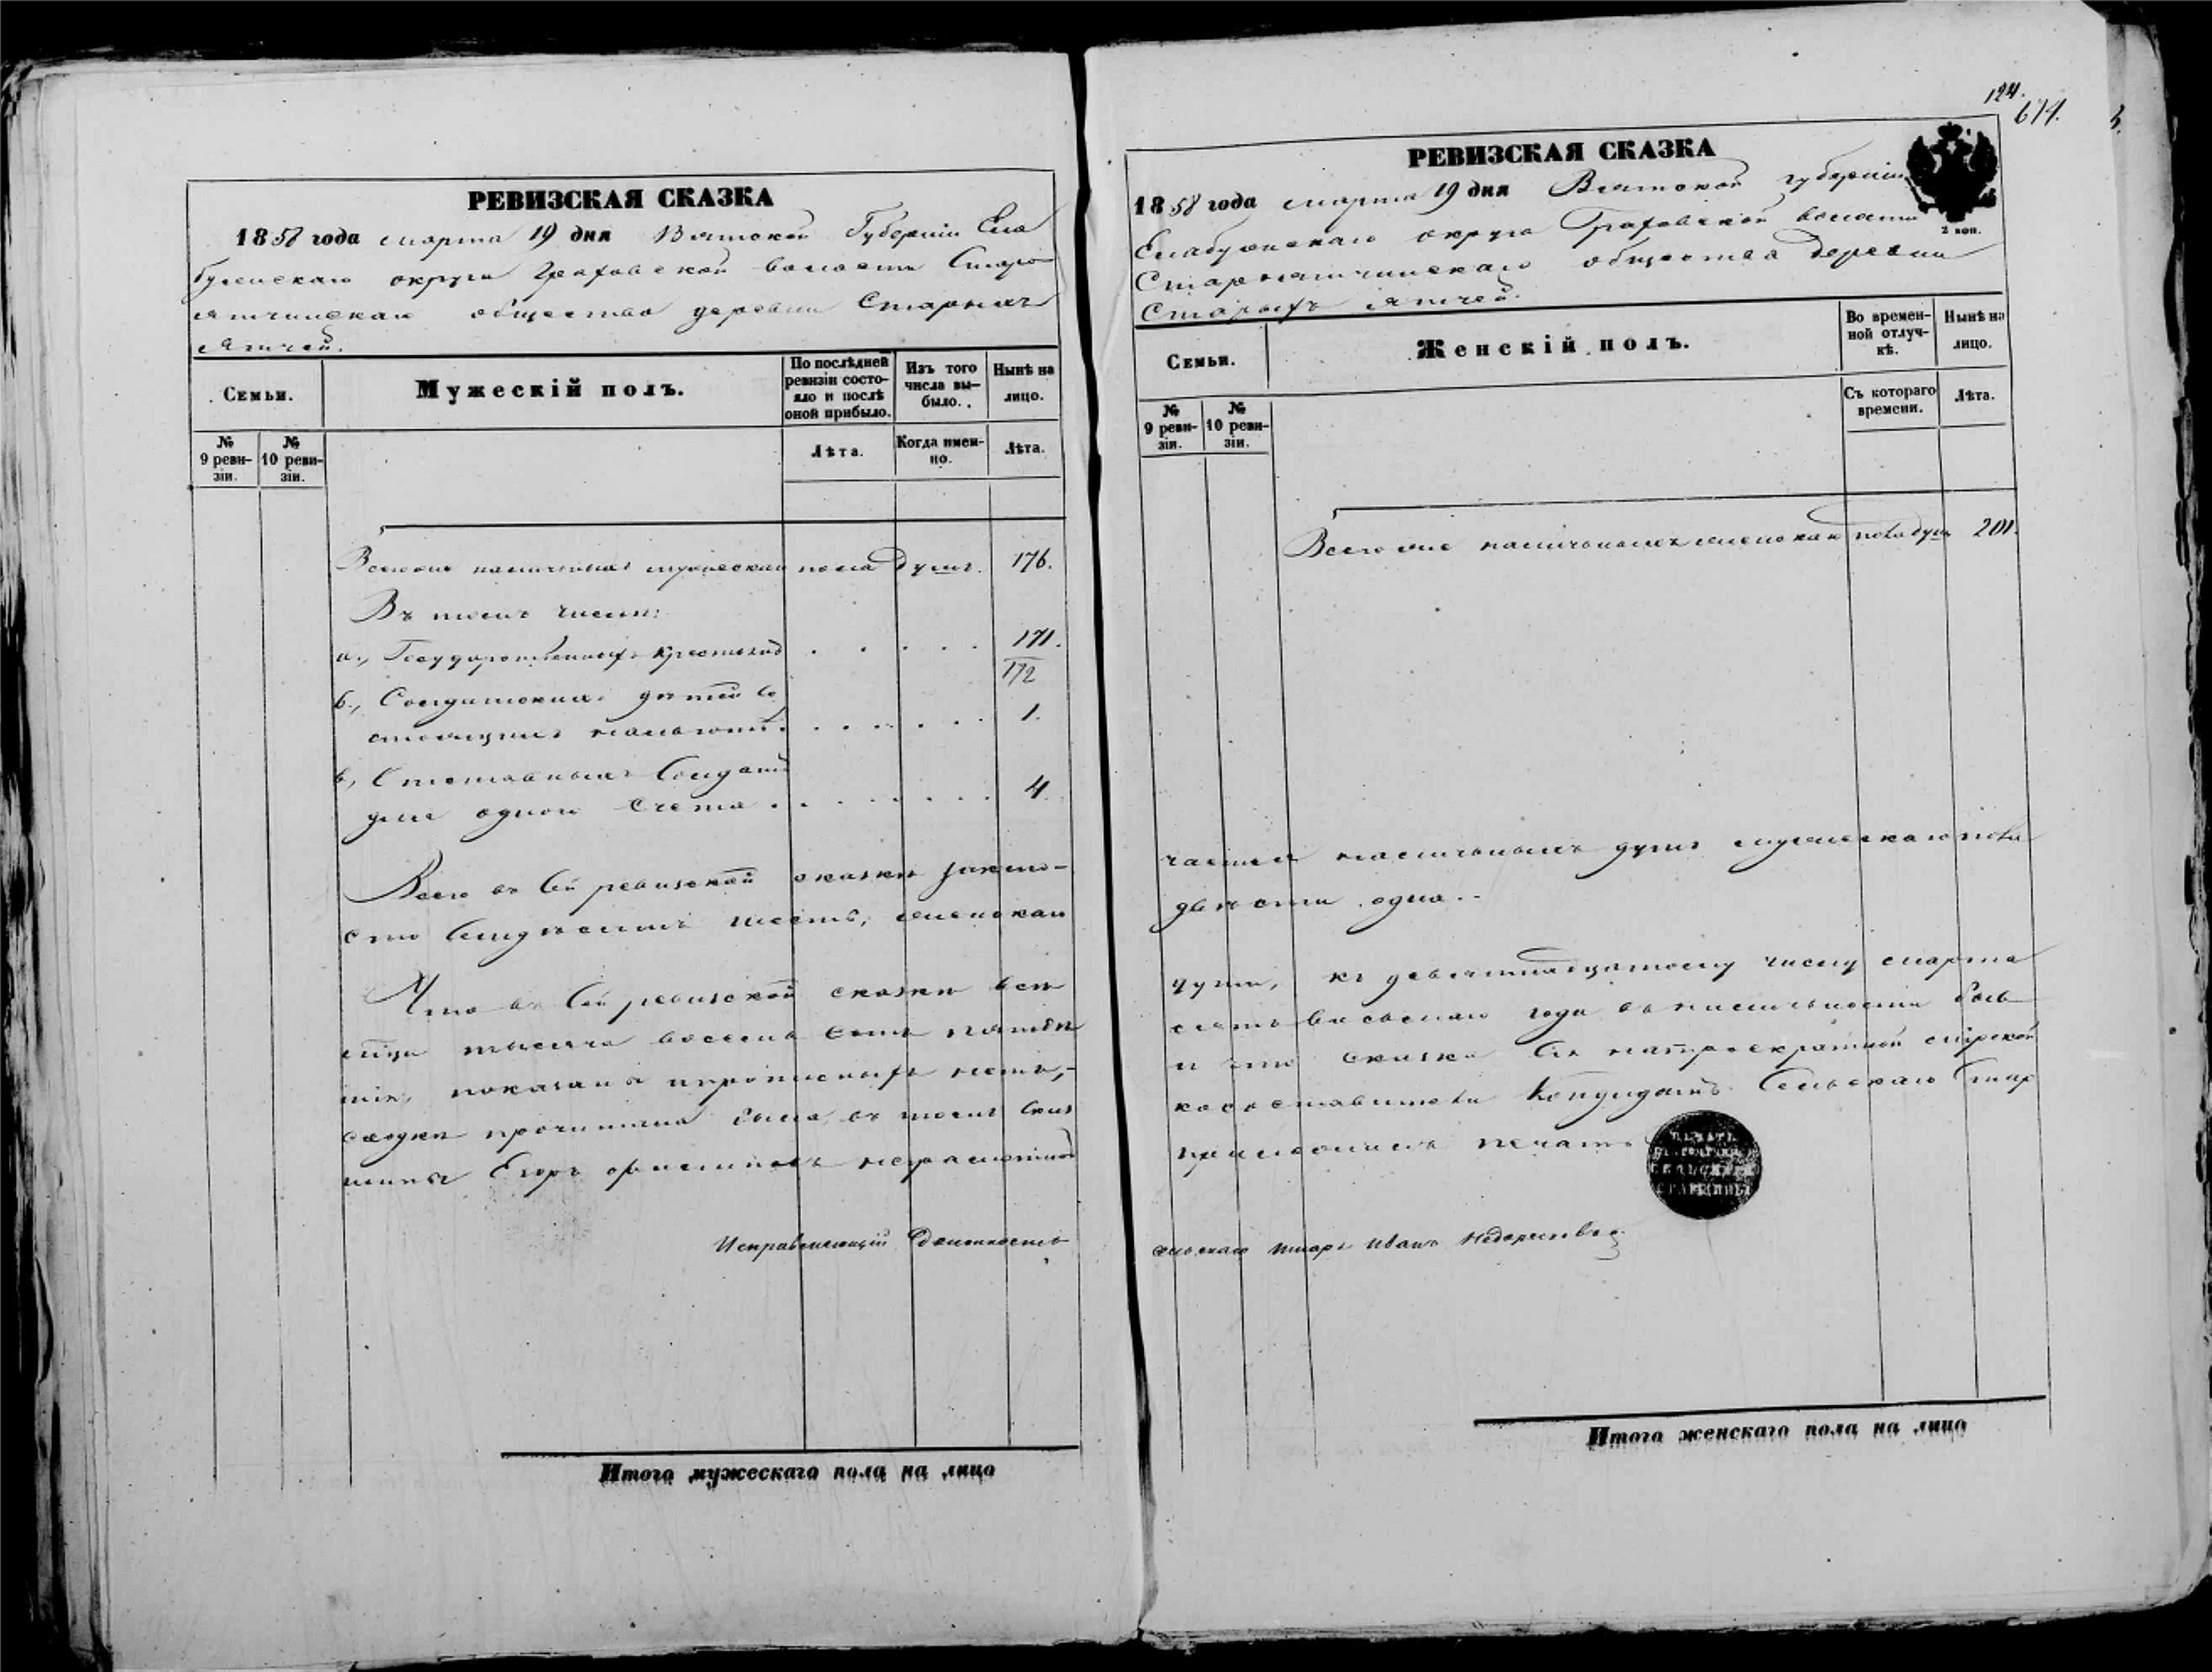 РЕВИЗСКАЯ СКАЗКА
1858 года марта 19 дня Вятской Губерніи Ела
бужскаго округа Граховской волости Старо
ятчинскаго общества деревни Старыхъ
Ятчей.
Семьи.
Мужескій полъ.
По послѣдней ревизіи состо-
яло и послѣ
оной прибыло.
Изъ того
числа вы-
было.
Нынѣ на
лицо.
№
9 реви-
зіи.
№
10 реви-
зіи.
Лѣта.
Когда имен-
но.
Лѣта.
наличныхъ мужескаго пола душъ. 176.
Въ томъ числѣ:
а., Государственныхъ крестьянъ . . . . . 171.
172
б., Солдатскихъ дѣтей
1.
в, Отставныхъ Солдатъ
для одного счета . . . . . . . . 4.
Всего въ сей ревизской сказкѣ заклю-
сто семдесятъ шесть, женскаго
Что въ сей ревизской сказкѣ всѣ
тысяча восемь сотъ пятьде
показаны и прописныхъ нетъ,
сходкѣ прочитана была, въ томъ
шины Егоръ неграмотной
Исправляющій Должность
Итого мужескаго пола на лицо
124.
674.
РЕВИЗСКАЯ СКАЗКА
2 коп.
1858 года марта 19 дня Вятской губерніи
Елабужскаго округа Граховской волости
Староятчинскаго общества деревни
Старыхъ Ятчей.
Семьи.
Женскій полъ.
Во времен-
ной отлуч-
кѣ.
Нынѣ на
лицо.
№
9 реви-
зіи.
№
10 реви-
зіи.
Съ котораго
времени.
Лѣта.
наличныхъ женскаго пола душъ 201.
чается наличныхъ душъ мужескаго пола
двѣсти одна.
души, къ девятнадцатому числу марта
сятъ восьмаго года въ наличности
и что сказка сія мірской
Кандидатъ Сельскаго Стар
приложилъ печать
ПЕЧАТЬ
СЕЛЬСКАГО
СТАРШИНЫ
сельскаго писаря Иванъ
Итого женскаго пола на лицо